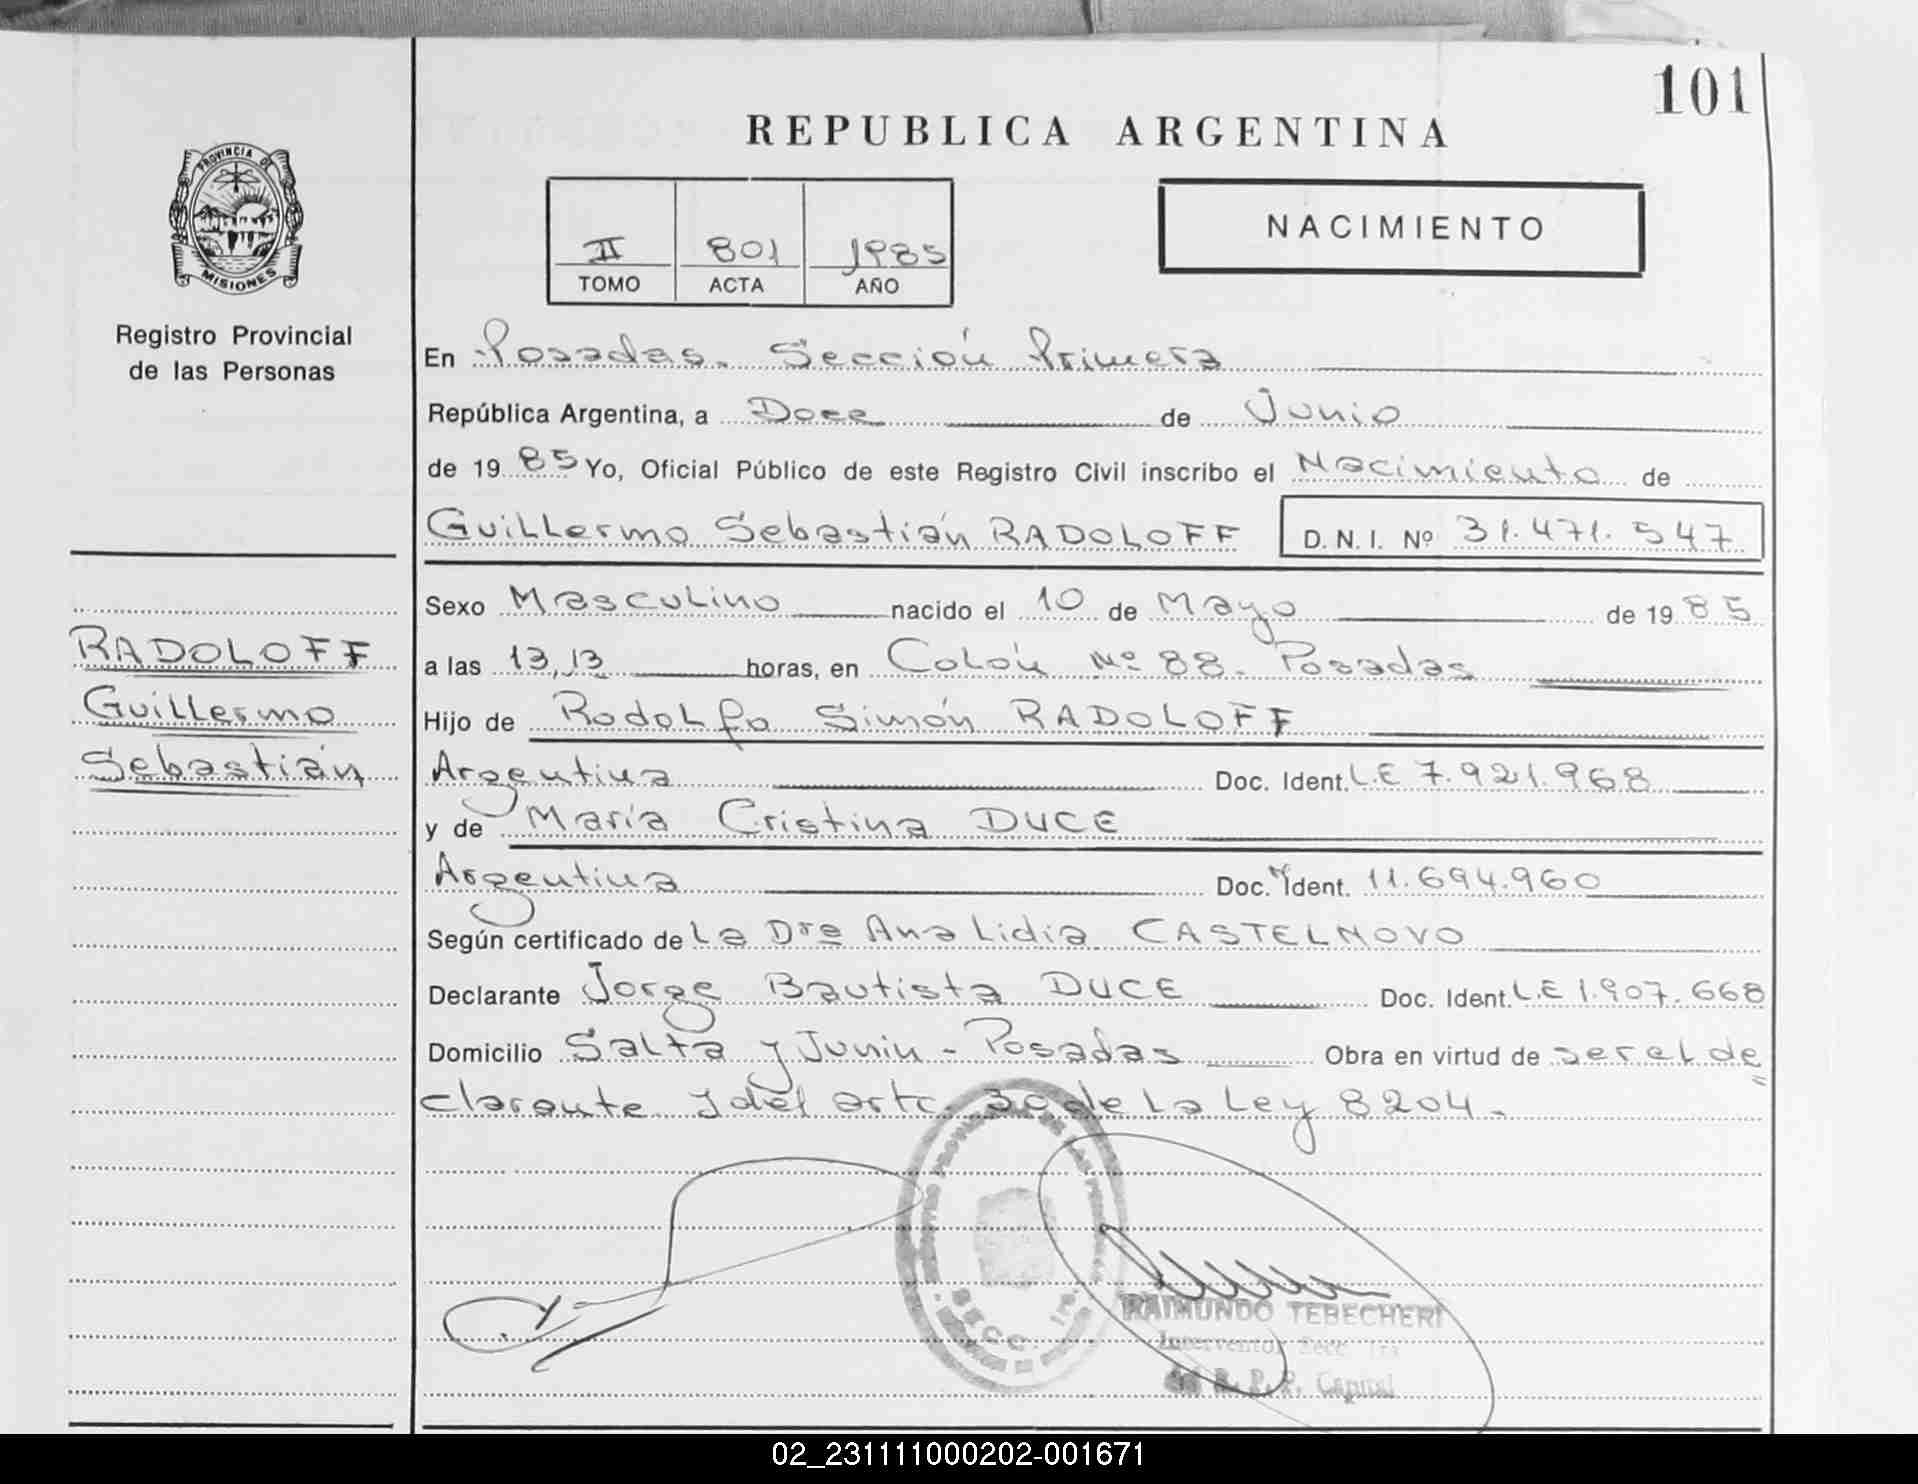 101
REPUBLICA ARGENTINA
PROVINCIA DE
MISIONES
Registro Provincial
de las Personas
II 801 1985
TOMO ACTA AÑO
NACIMIENTO
En Posadas. Sección Primera
República Argentina, a Doce de Junio
de 1985 Yo, Oficial Público de este Registro Civil inscribo el Nacimiento de
Guillermo Sebastián RADOLOFF D. N. I. Nº 31.471.547
RADOLOFF
Guillermo
Sebastián
Sexo Masculino nacido el 10 de Mayo de 1985
a las 13,13 horas, en Colón Nº 88. Posadas
Hijo de Rodolfo Simón RADOLOFF
Argentina Doc. Ident. L.E 7.921.968
y de María Cristina DUCE
Argentina Doc. Ident. 11.694.960
Según certificado de La Dra Ana Lidia CASTELNOVO
Declarante Jorge Bautista DUCE Doc. Ident. L.E 1.907.668
Domicilio Salta y Junin - Posadas Obra en virtud de ser el de=
clarante y del artc. 30 de La Ley 8204.
SECC. 1ra.
RAIMUNDO TEBECHERI
Interventor Secc 1ra
R. P. P. Capital
02_231111000202-001671